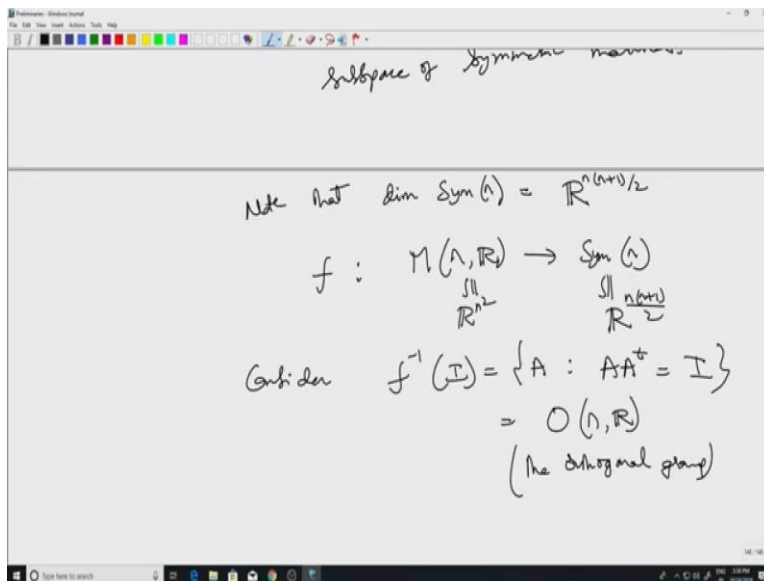 Preliminaries - Windows Journal
File Edit View Insert Actions Tools Help
Subspace of Symmetric
Note that dim Sym(n) = ℝ^{n(n+1)/2}
f : M(n, ℝ) → Sym(n)
≅ ≅
ℝ^{n^2} ℝ^{n(n+1)/2}
Consider f^{-1}(I) = {A : AA^t = I}
= O(n, ℝ)
(the orthogonal group)
Type here to search